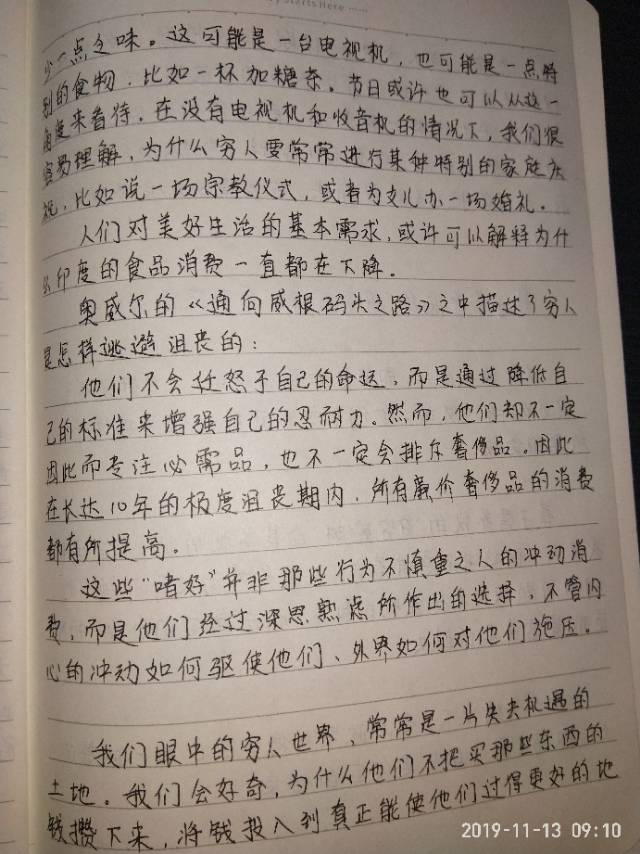 Starts Here
少一点乏味。这可能是一台电视机，也可能是一点特
别的食物，比如一杯加糖茶。节日或许也可以从这一
角度来看待，在没有电视机和收音机的情况下，我们很
容易理解，为什么穷人要常常进行某种特别的家庭庆
祝，比如说一场宗教仪式，或者为女儿办一场婚礼。
人们对美好生活的基本需求，或许可以解释为什
么印度的食品消费一直都在下降。
奥威尔的《通向威根码头之路》之中描述了穷人
是怎样逃避沮丧的：
他们不会迁怒于自己的命运，而是通过降低自
己的标准来增强自己的忍耐力。然而，他们却不一定
因此而专注必需品，也不一定会排斥奢侈品。因此
在长达10年的极度沮丧期内，所有廉价奢侈品的消费
都有所提高。
这些“嗜好”并非那些行为不慎重之人的冲动消
费，而是他们经过深思熟虑所作出的选择，不管内
心的冲动如何驱使他们、外界如何对他们施压。
我们眼中的穷人世界，常常是一片失去机遇的
土地。我们会好奇，为什么他们不把买那些东西的
钱攒下来，将钱投入到真正能使他们过得更好的地
2019-11-13 09:10